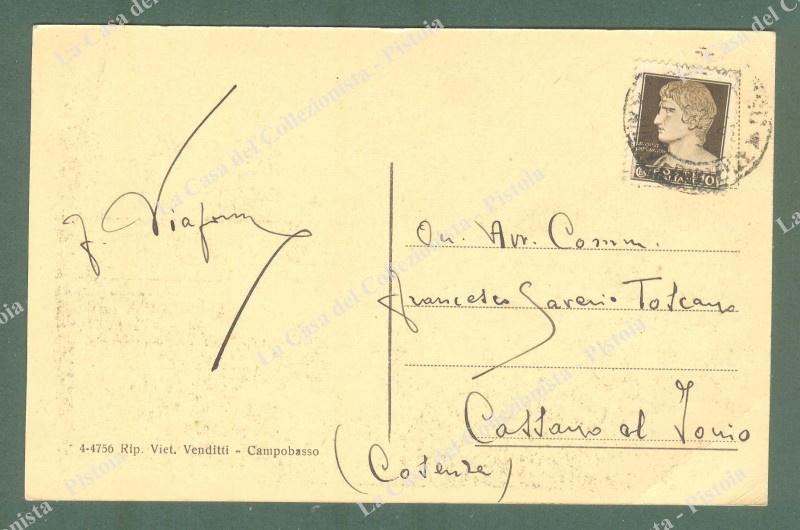 On. Avv. Comm.
Francesco Saverio Toscano
Cassano al Jonio
(Cosenza)
4-4756 Rip. Viet. Venditti - Campobasso
La Casa del Collezionista - Pistoia